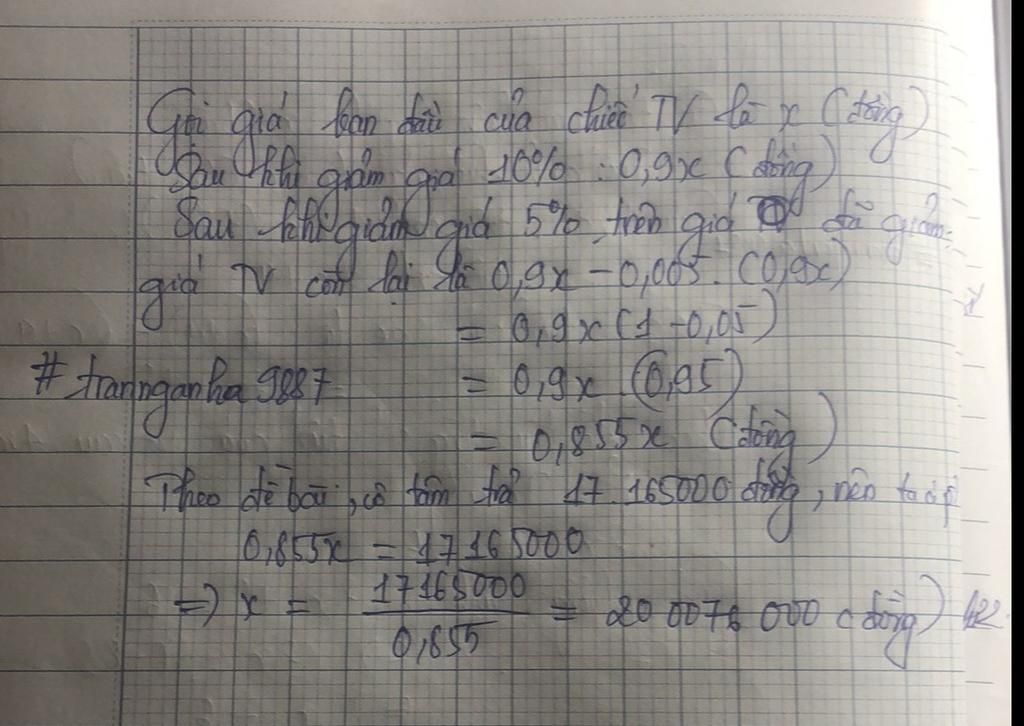 Gọi giá ban đầu của chiếc TV là x (đồng)
Sau khi giảm giá 10% : 0,9x (đồng)
Sau khi giảm giá 5% trên giá đã giảm
giá TV còn lại là 0,9x - 0,005. (0,9x)
= 0,9x (1 - 0,05)
# trannganha 9887 = 0,9x (0,95)
= 0,855x (đồng)
Theo đề bài, cô tâm trả 17 165000 đồng, nên ta có
0,855x = 17165000
=> x = 17165000 / 0,855 = 20 0076 000 (đồng)